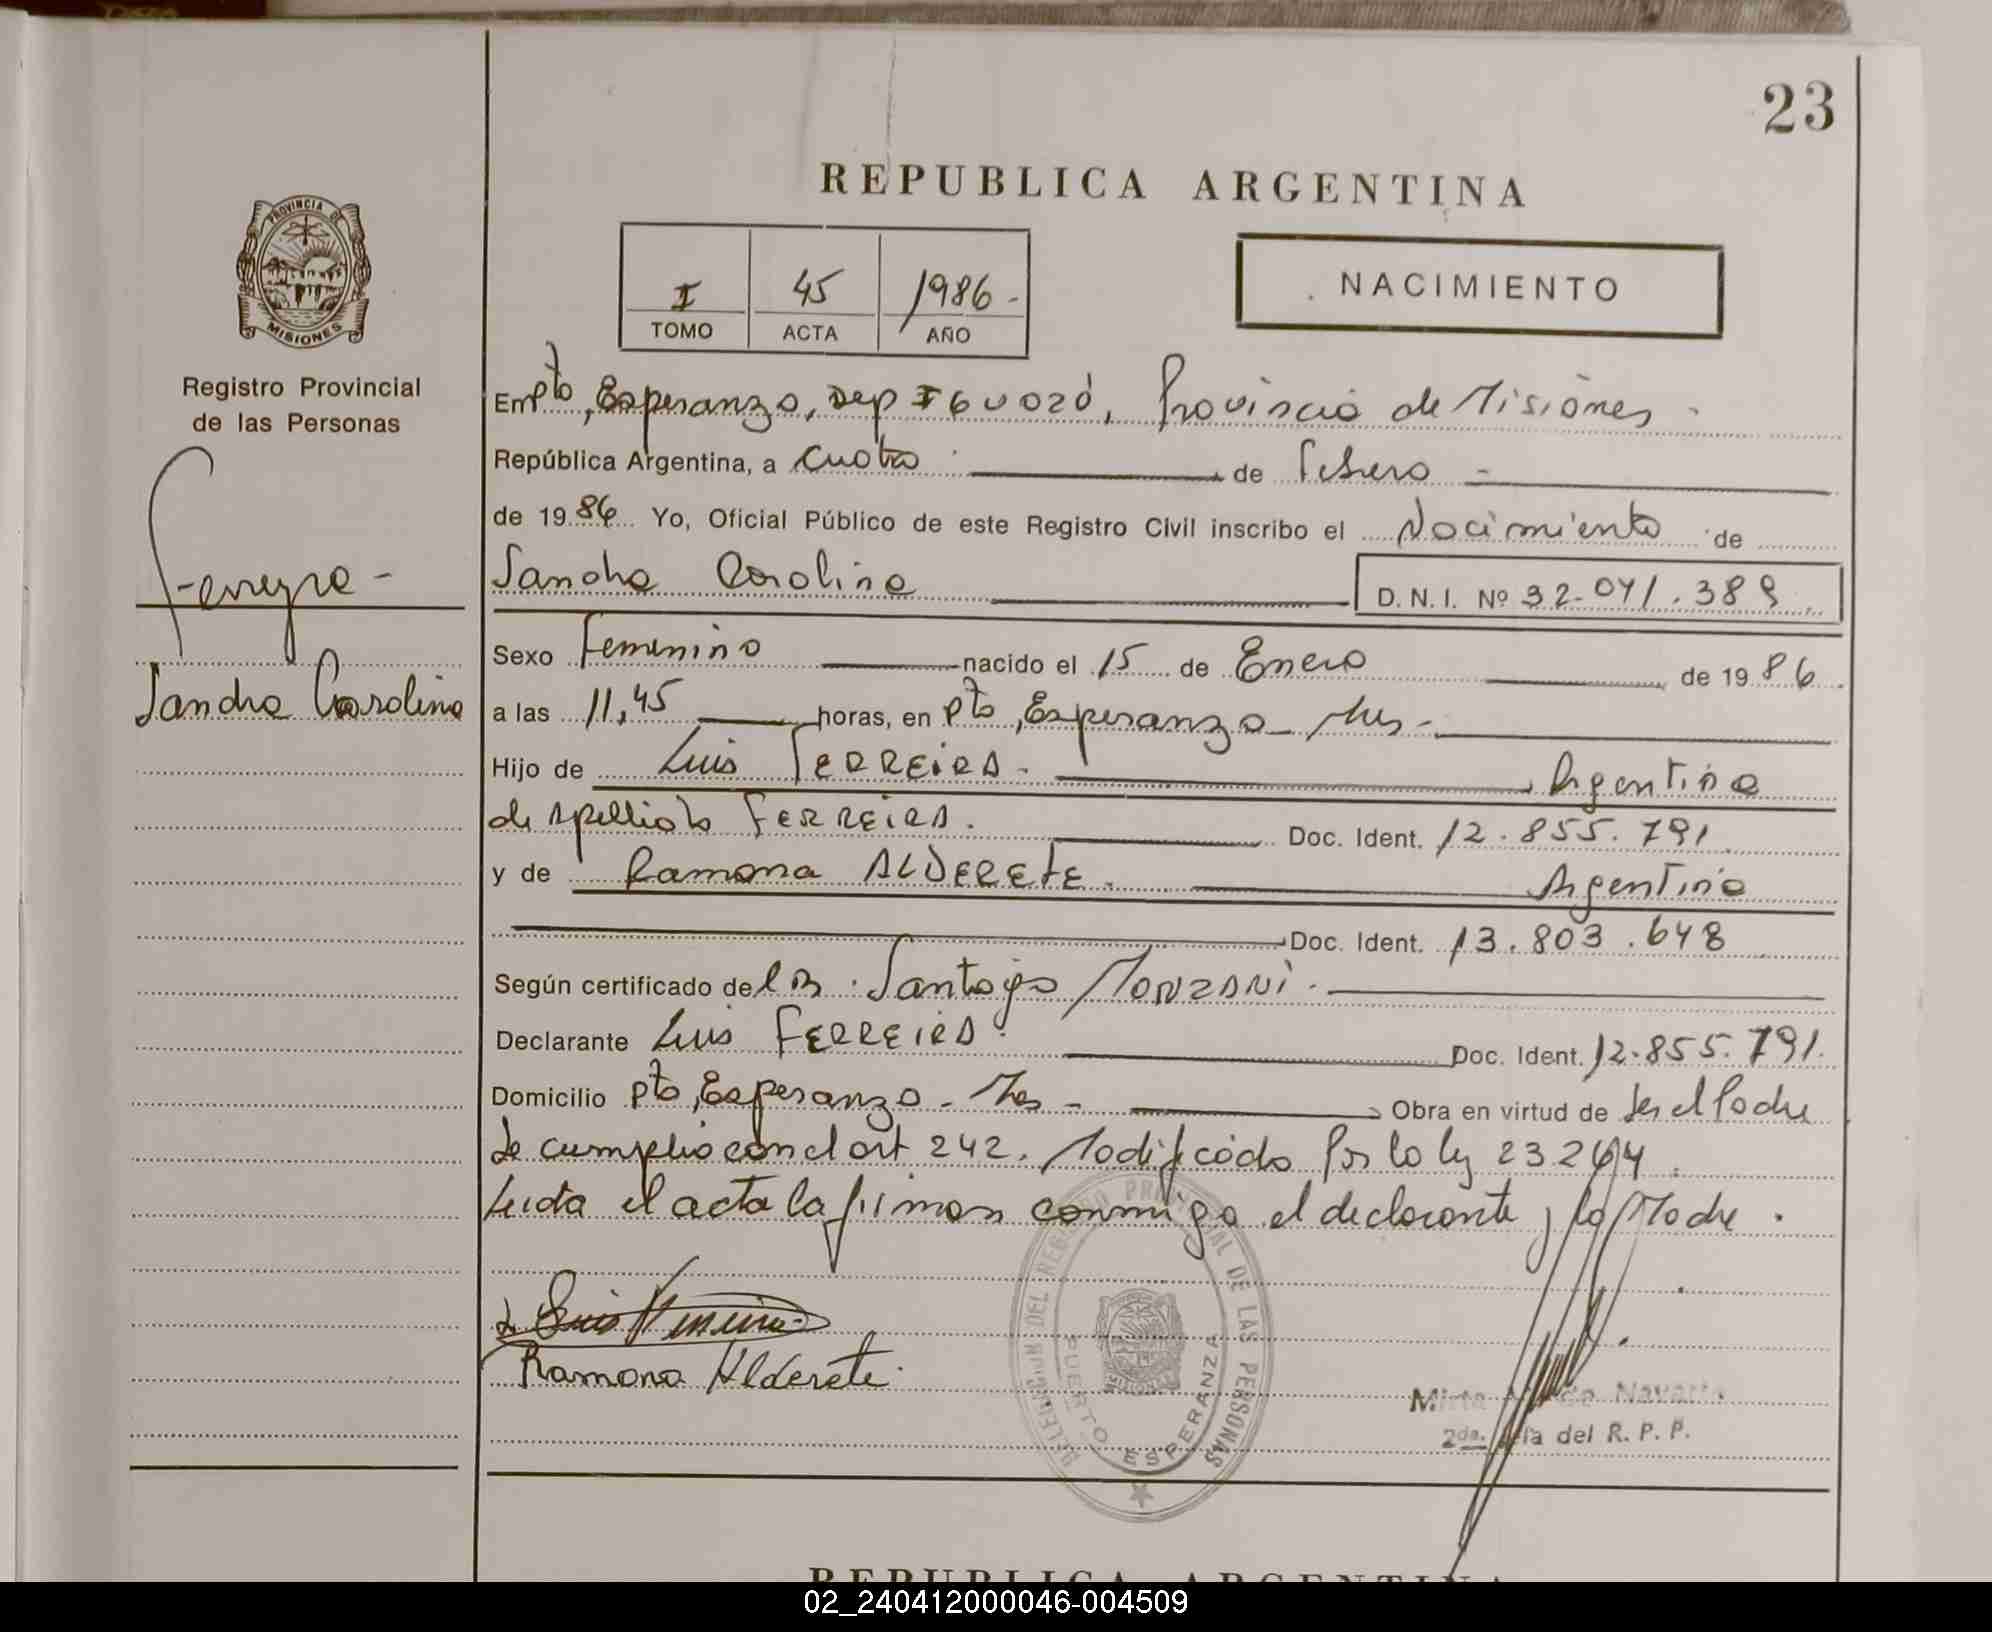 23
REPUBLICA ARGENTINA
I 45 1986-
TOMO ACTA AÑO
NACIMIENTO
PROVINCIA DE
MISIONES
Registro Provincial
de las Personas
Ferreyra -
Sandra Carolina
En Pto, Esperanza, Dep IGUAZÚ, Provincia de Misiones -
República Argentina, a cuatro de Febrero -
de 1986 Yo, Oficial Público de este Registro Civil inscribo el Nacimiento de
Sandra Carolina D. N. I. Nº 32.041.389
Sexo Femenino nacido el 15 de Enero de 1986
a las 11,45 horas, en Pto, Esperanza - Mnes -
Hijo de Luis FERREIRA - Argentino
de apellido FERREIRA. Doc. Ident. 12.855.791
y de Ramona ALDERETE. Argentina
Doc. Ident. 13.803.648
Según certificado del Dr. Santiago MONZANI -
Declarante Luis FERREIRA. Doc. Ident. 12.855.791.
Domicilio Pto, Esperanza - Mnes - Obra en virtud de ser el Padre
Se cumplio con el art 242. Modificado Por la ley 23.264.
Leida el acta la firman conmigo el declarante y la Madre.
Luis Ferreira
Ramona Alderete.
DELEGACION DEL REGISTRO PROVINCIAL DE LAS PERSONAS
PUERTO ESPERANZA
MISIONES
Mirta de Navarro
2da. del R. P. P.
REPUBLICA ARGENTINA
02_240412000046-004509